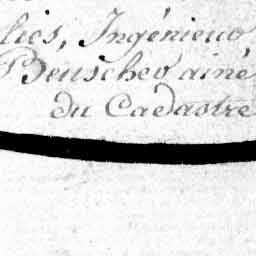 lies, Ingénieur
Beuscher ainé
du Cadastre